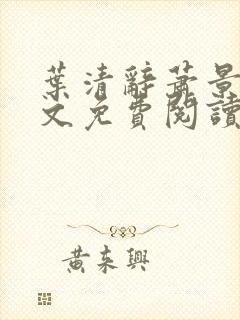 葉清辭蕭景
文免費閱讀
黃來興